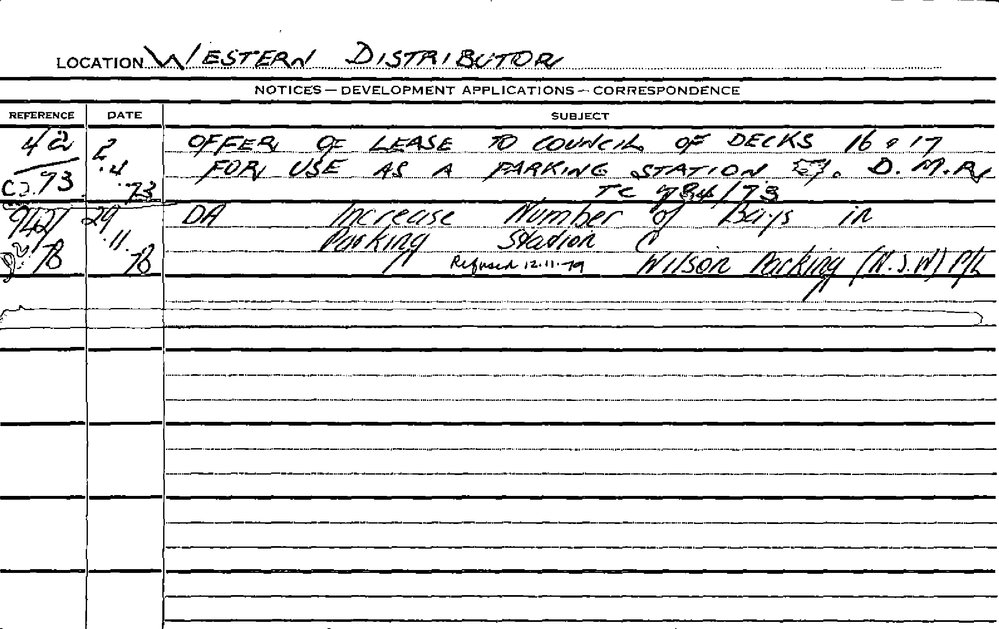 LOCATION WESTERN DISTRIBUTOR
NOTICES — DEVELOPMENT APPLICATIONS — CORRESPONDENCE
REFERENCE DATE SUBJECT
42 2 OFFER OF LEASE TO COUNCIL OF DECKS 16 & 17
.4 FOR USE AS A PARKING STATION D.M.R.
73 .73 TC 784/73
942/ 29 DA Increase Number of Bays in
.11. Parking Station
78 78 Refused 12.11.79 Wilson Parking (N.S.W) P/L